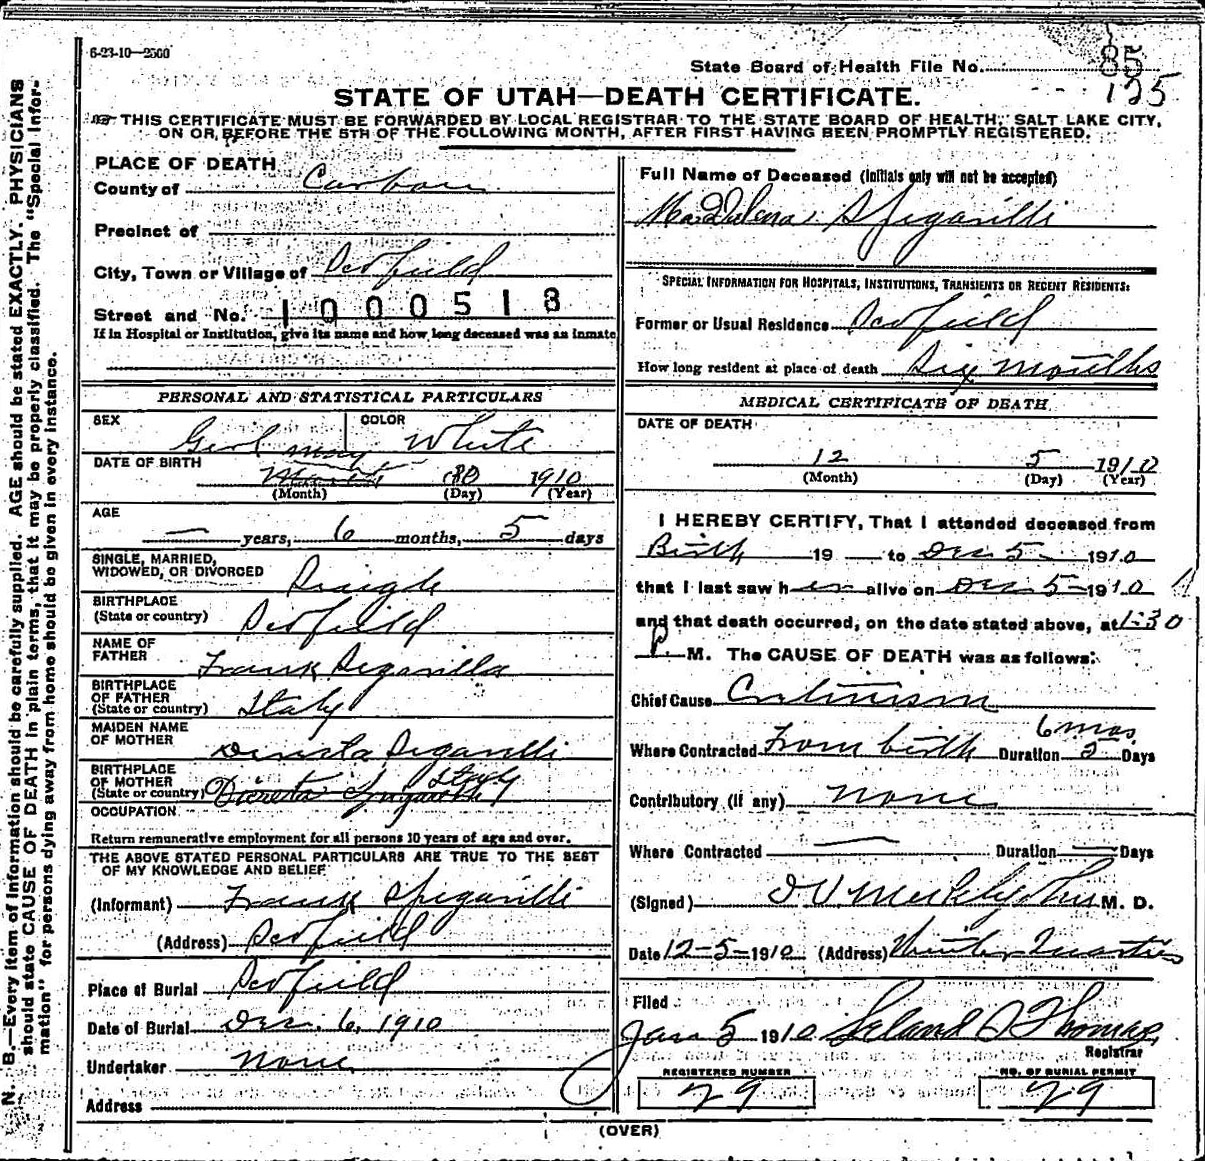 6-23-10—2500
State Board of Health File No. 85
125
STATE OF UTAH—DEATH CERTIFICATE.
THIS CERTIFICATE MUST BE FORWARDED BY LOCAL REGISTRAR TO THE STATE BOARD OF HEALTH, SALT LAKE CITY,
ON OR BEFORE THE 5TH OF THE FOLLOWING MONTH, AFTER FIRST HAVING BEEN PROMPTLY REGISTERED.
N. B.—Every item of information should be carefully supplied. AGE should be stated EXACTLY. PHYSICIANS
should state CAUSE OF DEATH in plain terms, that it may be properly classified. The "Special Infor-
mation" for persons dying away from home should be given in every instance.
PLACE OF DEATH
County of Carbon
Precinct of
City, Town or Village of Scofield
Street and No. 1000518
If in Hospital or Institution, give its name and how long deceased was an inmate
PERSONAL AND STATISTICAL PARTICULARS
SEX Girl COLOR White
May
DATE OF BIRTH 30 1910
(Month) (Day) (Year)
AGE
— years, 6 months, 5 days
SINGLE, MARRIED,
WIDOWED, OR DIVORCED Single
BIRTHPLACE
(State or country) Scofield
NAME OF
FATHER Frank
BIRTHPLACE
OF FATHER
(State or country) Italy
MAIDEN NAME
OF MOTHER
BIRTHPLACE
OF MOTHER Italy
(State or country)
OCCUPATION
Return remunerative employment for all persons 10 years of age and over.
THE ABOVE STATED PERSONAL PARTICULARS ARE TRUE TO THE BEST
OF MY KNOWLEDGE AND BELIEF
(Informant) Frank Spigarilli
(Address) Scofield
Place of Burial Scofield
Date of Burial Dec. 6, 1910
Undertaker none
Address
Full Name of Deceased (Initials only will not be accepted)
Maddalena Spigarilli
SPECIAL INFORMATION FOR HOSPITALS, INSTITUTIONS, TRANSIENTS OR RECENT RESIDENTS:
Former or Usual Residence Scofield
How long resident at place of death Six months
MEDICAL CERTIFICATE OF DEATH
DATE OF DEATH
12 5 1910
(Month) (Day) (Year)
I HEREBY CERTIFY, That I attended deceased from
Birth 19 to Dec 5— 1910
that I last saw her alive on Dec 5—1910
and that death occurred, on the date stated above, at 1-30
P. M. The CAUSE OF DEATH was as follows:
Chief Cause Cretinism
6 mos
Where Contracted From birth Duration 5 Days
Contributory (if any) none
Where Contracted — Duration — Days
(Signed) M. D.
Date 12-5-1910 (Address) Winter Quarters
Filed
Jan 5 1910 Leland S Thomas
Registrar
REGISTERED NUMBER NO. OF BURIAL PERMIT
29 29
(OVER)